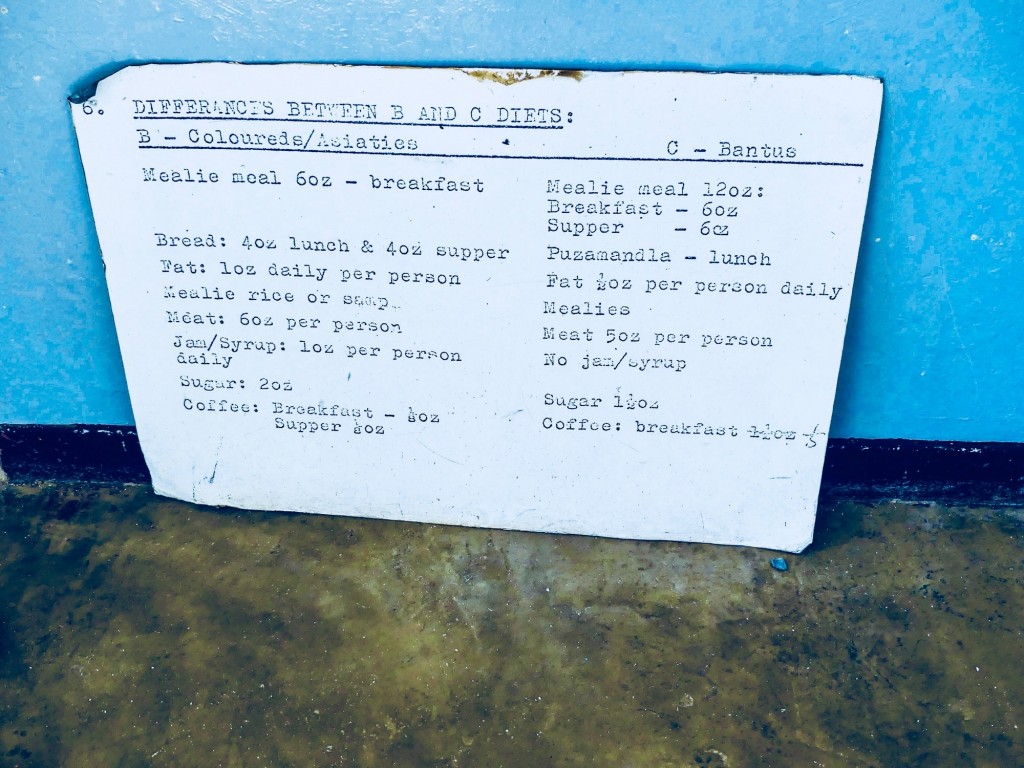 6. DIFFERANCES BETWEEN B AND C DIETS:
B - Coloureds/Asiaties
C - Bantus
Mealie meal 6oz - breakfast
Bread: 4oz lunch & 4oz supper
Fat: 1oz daily per person
Mealie rice or samp
Meat: 6oz per person
Jam/Syrup: 1oz per person
daily
Sugar: 2oz
Coffee: Breakfast -
Supper
Mealie meal 12oz:
Breakfast - 6oz
Supper - 6oz
Puzamandla - lunch
Fat ½oz per person daily
Mealies
Meat 5oz per person
No jam/syrup
Sugar 1½oz
Coffee: breakfast